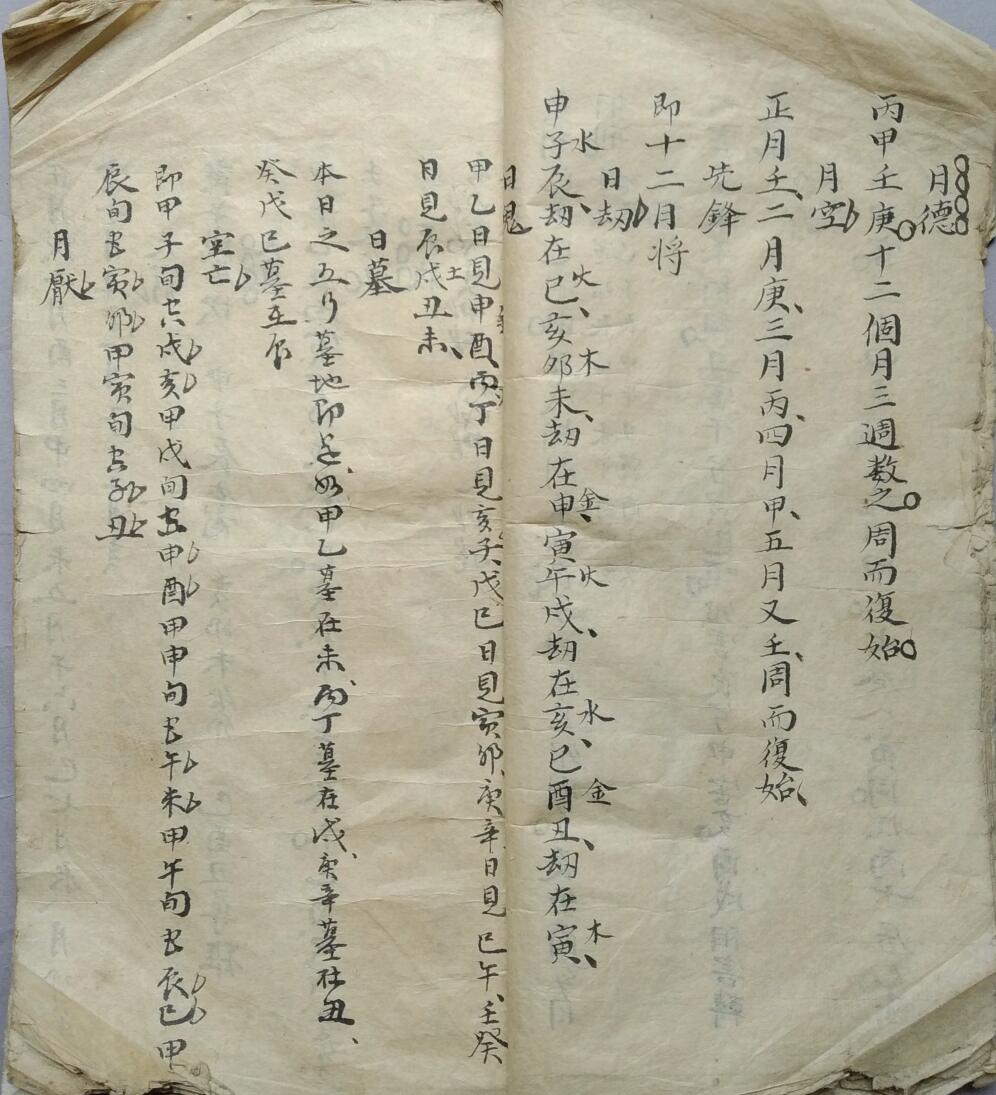 月德
丙甲壬庚十二個月三週数之周而復始
月空
正月壬、二月庚、三月丙、四月甲、五月又壬、周而復始、
先鋒
即十二月将
日劫
申子辰劫在巳、亥卯未、劫在申、寅午戌、劫在亥、巳酉丑、劫在寅、
水火木金火水金木
日鬼
甲乙日見申酉丙丁日見亥子、戊巳日見寅卯、庚辛日見巳午、壬癸
日見辰戌丑未、
土
日墓
本日之五行墓地即是、如甲乙墓在未、丙丁墓在戌、庚辛墓在丑、
癸戊巳墓在辰
空亡
即甲子旬空戌亥甲戌旬空申酉甲申旬空午未甲午旬空辰巳甲
辰旬空寅卯甲寅旬空子丑
月厭